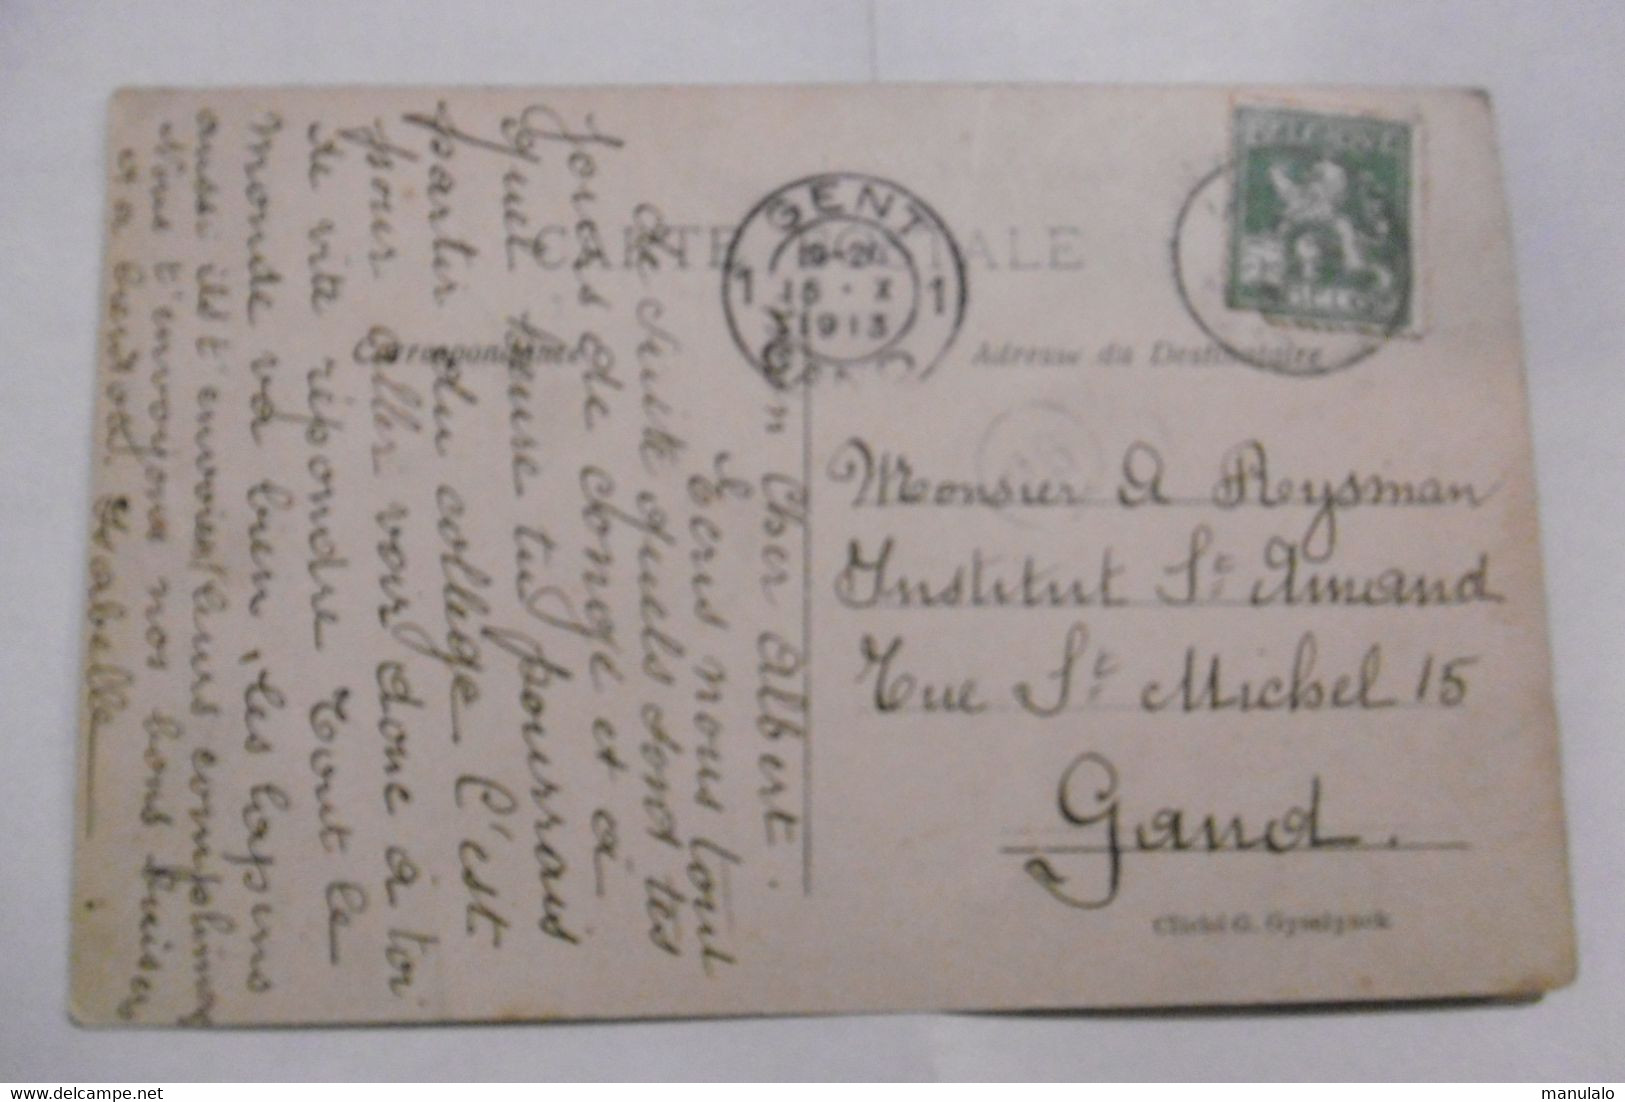 CARTE POSTALE
Correspondance
Adresse du Destinataire
BELGIQUE
GENT
1 1
15 · X
1913
Monsieur A Reysman
Institut St Amand
Rue St Michel 15
Gand.
Cliché G. Gyselynck
Mon Cher Albert.
Ecris nous tout
de suite quels sont tes
jours de congé et à
quel heure tu pourrais
partir du collège C'est
pour aller voir donc à toi
de vite répondre Tout le
monde va bien, les lapins
aussi ils t'envoient leurs compliments
Nous t'envoyons nos bons baisers
Isabelle
manulalo